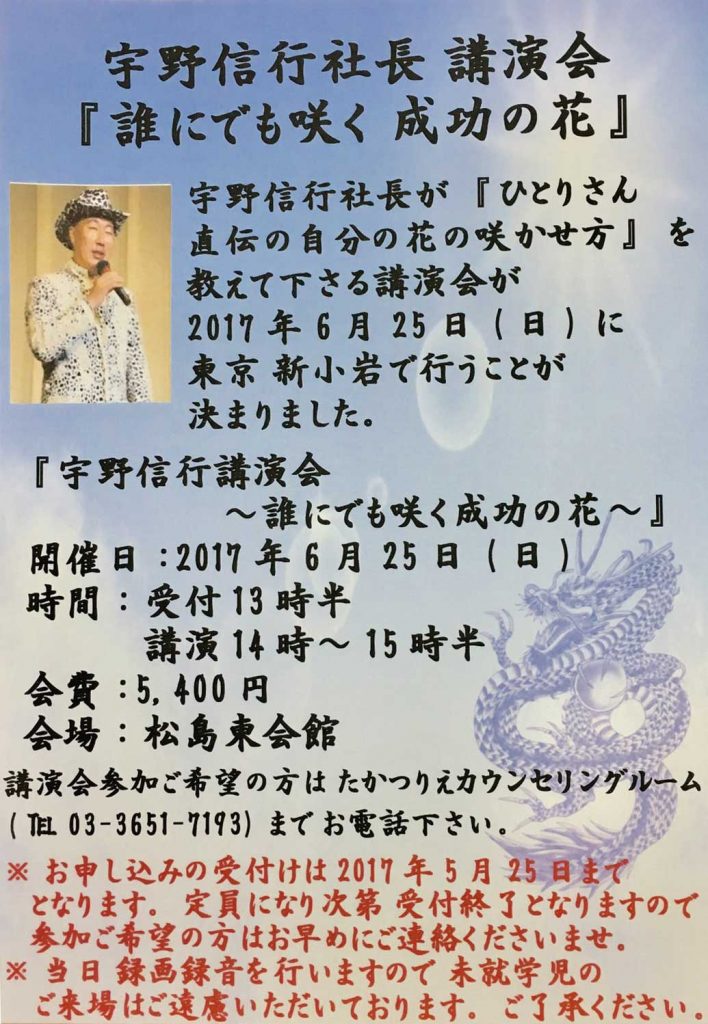 宇野信行社長 講演会
『誰にでも咲く 成功の花』
宇野信行社長が『ひとりさん
直伝の自分の花の咲かせ方』を
教えて下さる講演会が
2017年6月25日(日)に
東京 新小岩で行うことが
決まりました。
『宇野信行講演会
～誰にでも咲く成功の花～』
開催日:2017年6月25日(日)
時間:受付13時半
講演14時～15時半
会費:5,400円
会場:松島東会館
講演会参加ご希望の方は たかつりえカウンセリングルーム
(℡ 03-3651-7193)までお電話下さい。
※ お申し込みの受付けは2017年5月25日まで
となります。定員になり次第 受付終了となりますので
参加ご希望の方はお早めにご連絡くださいませ。
※ 当日 録画録音を行いますので 未就学児の
ご来場はご遠慮いただいております。ご了承ください。